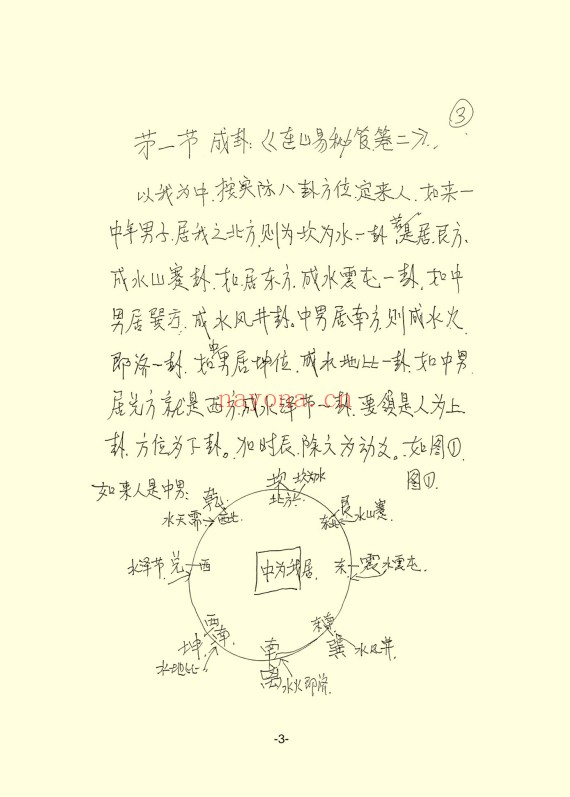 ③
第一节 成卦:《连山易秘笈卷二》.
以我为中.按实际八卦方位定来人.如来一
中年男子.居我之北方,则为坎为水一卦,若是居艮方.
成水山蹇卦.如居东方.成水雷屯一卦.如中
男居巽方.成水风井卦。中男居南方,则成水火
即济一卦.如中男居坤位.成水地比一卦.如中男
居兑方就是西方,成水泽节一卦.要领是人为上
卦.方位为下卦。.加时辰.除六为动爻。.如图①.
nayona.cn
如来人是中男:
图①.
坎 坎为水
北方
乾
水天需 西北
艮
东北 水山蹇.
水泽节 兑 西
中为我居.
东 震 水雷屯.
西南
坤
水地比
东南
巽 水风井.
南
离 水火即济.
-3-